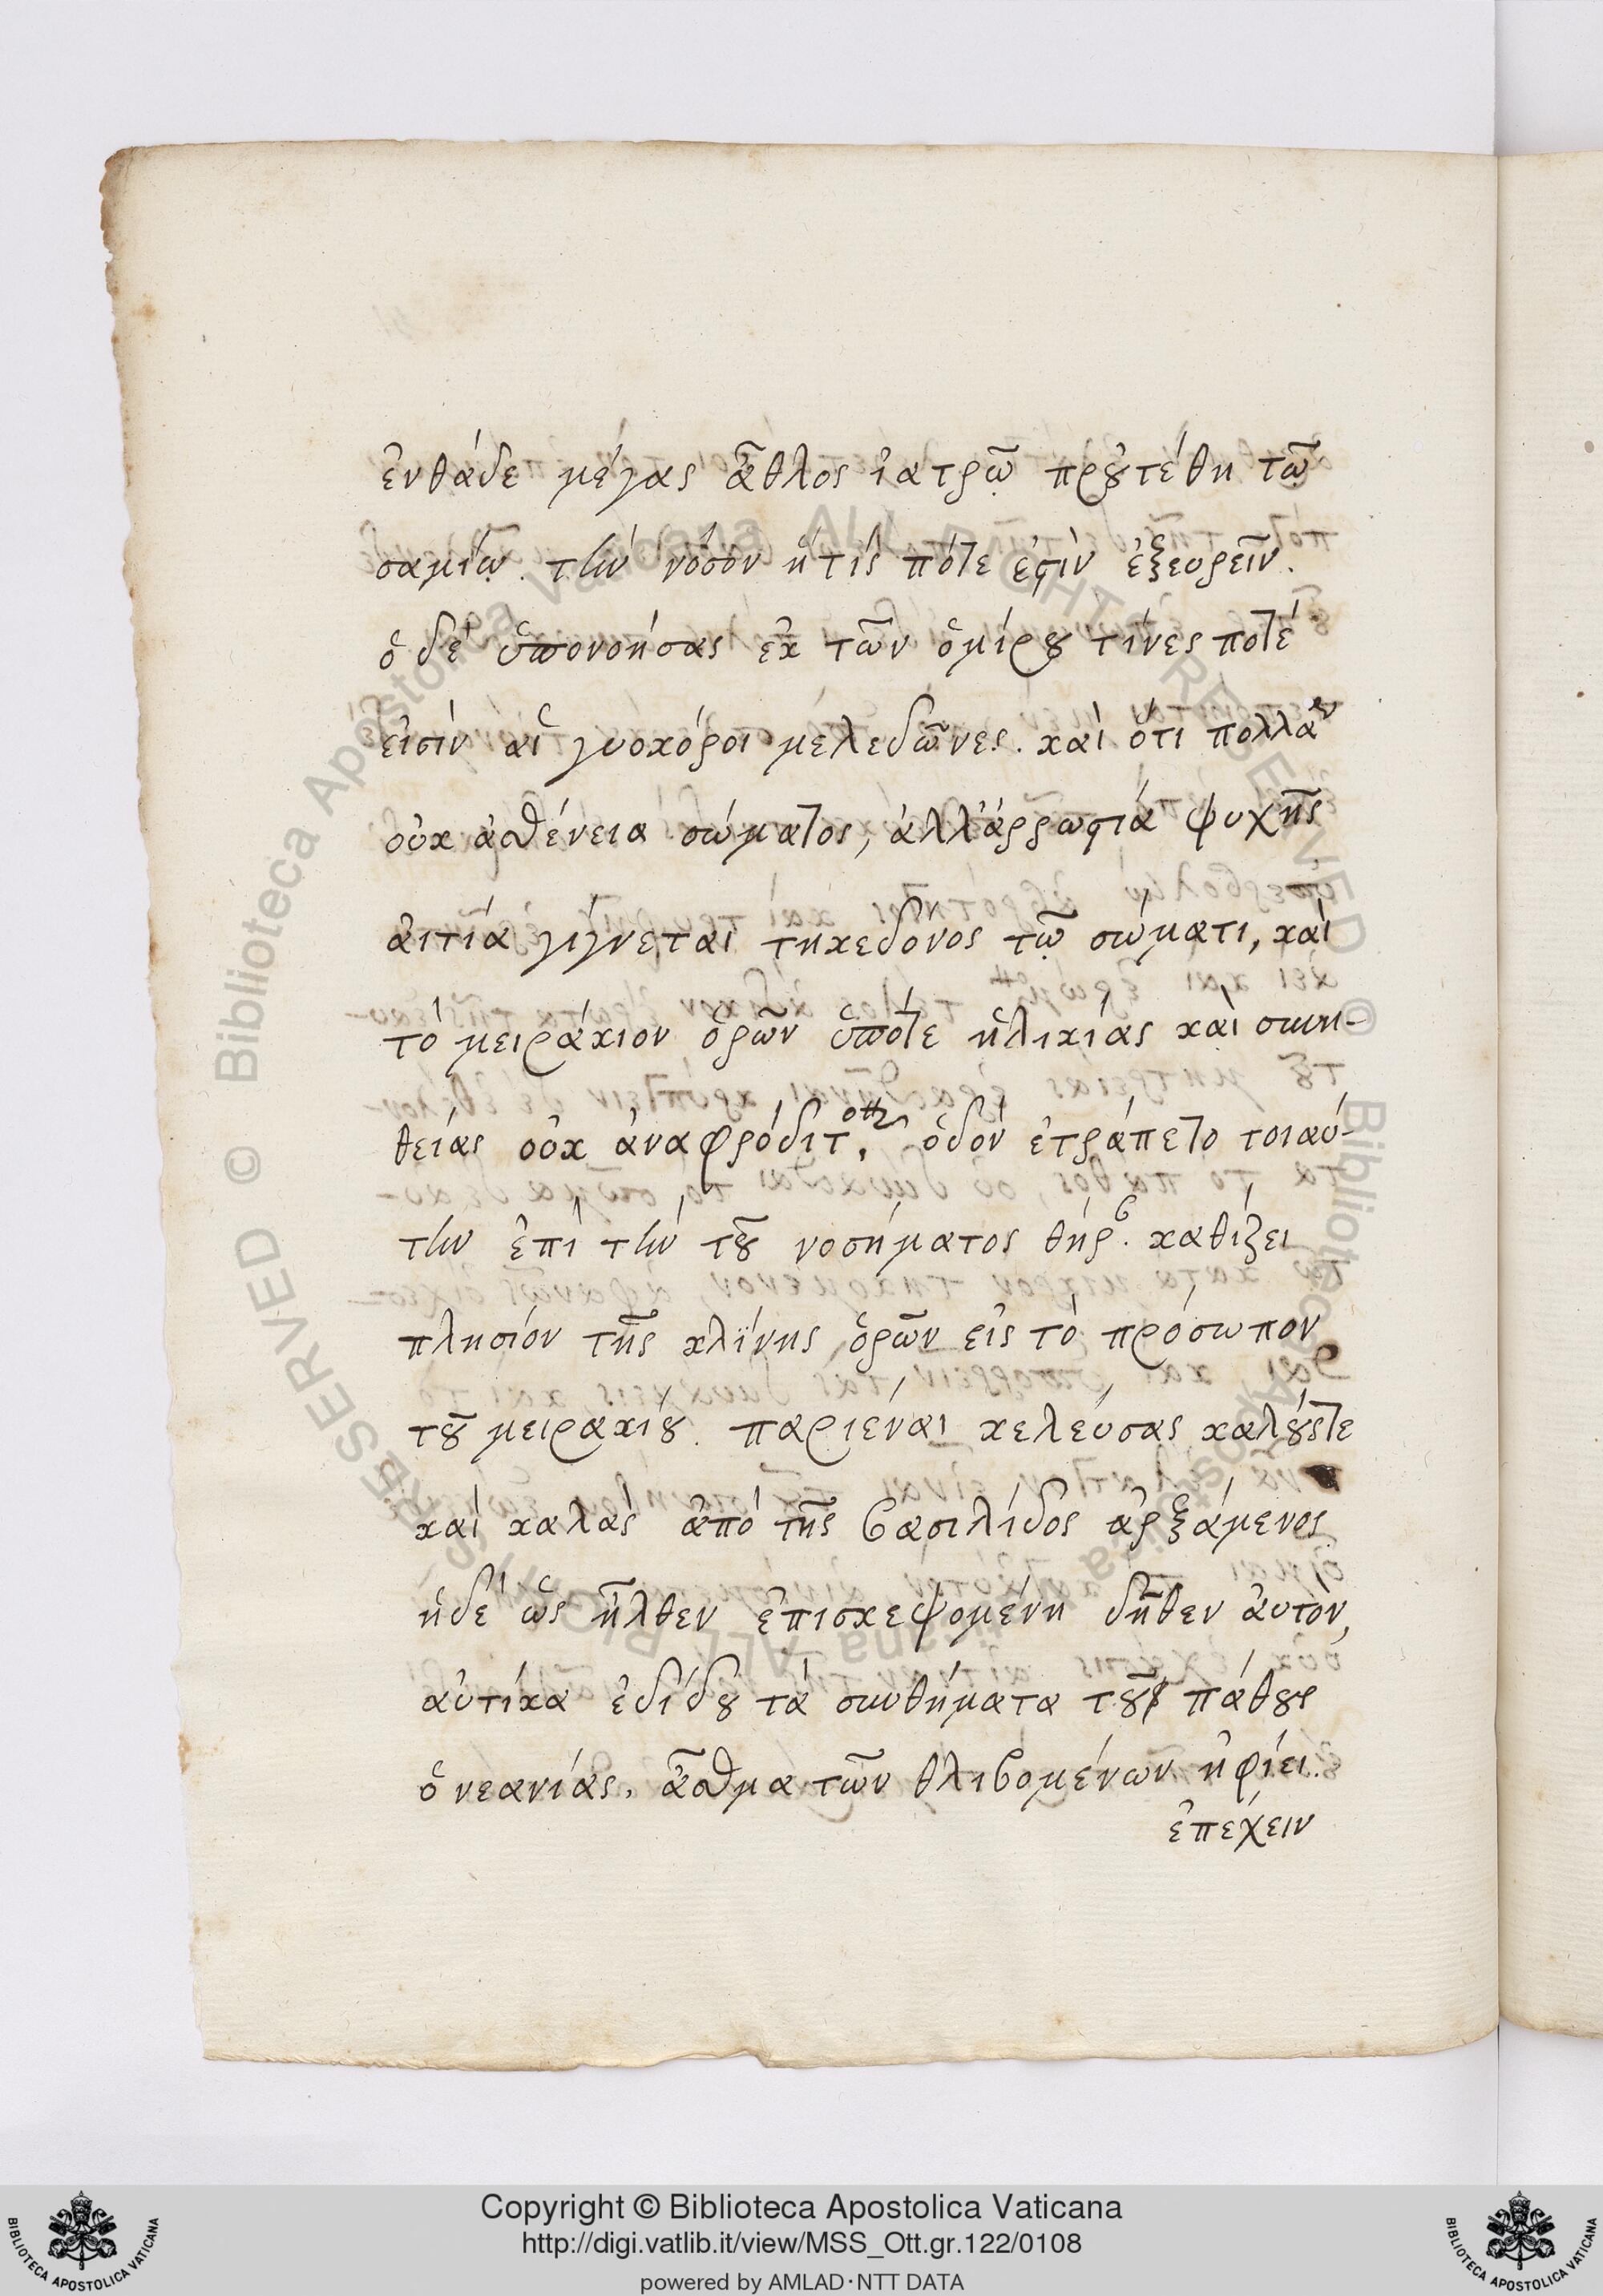 ἐνθάδε μέγας ἆθλος ἰατρῷ πρὐτέθη τῷ
σαμίῳ. τὴν νόσον ἥτις πότε ἐστὶν ἐξευρεῖν.
ὁ δὲ ὑπονοήσας ἐκ τῶν ὁμίρου τίνες ποτέ
εἰσίν αἱ γυοκόροι μελεδῶνες. καὶ ὅτι πολλὰ
οὐκ ἀσθένεια σώματος, ἀλλ' ἀρρωστιά ψυχῆς
ἀιτία γίγνεται τηκεδόνος τῷ σώματι, καὶ
τὸ μειράκιον ὁρῶν ὑπότε ἡλικίας καὶ συνη-
θείας οὐκ ἀναφρόδιτον, ὁδὸν ἐτράπετο τοιαύ-
την ἐπὶ τὴν τοῦ νοσήματος θήρ. καθίζει
πλησίον τῆς κλίνης ὁρῶν εἰς τὸ πρόσωπον
τοῦ μειρακίου. παριέναι κελεύσας καλούςτε
καὶ καλὰς ἀπὸ τῆς βασιλίδος ἀρξάμενος
ἡδὲ ὡς ἦλθεν ἐπισκεψομένη δῆθεν ἀυτον,
αὐτίκα ἐδίδου τὰ συνθήματα τοῦ πάθους
ὁ νεανίας. ἆσθμα τῶν θλιβομένων ἠφίει.
ἐπέχειν
Bibliotheca Apostolica Vaticana
Copyright © Biblioteca Apostolica Vaticana
http://digi.vatlib.it/view/MSS_Ott.gr.122/0108
powered by AMLAD·NTT DATA
BIBLIOTECA APOSTOLICA VATICANA
BIBLIOTECA APOSTOLICA VATICANA